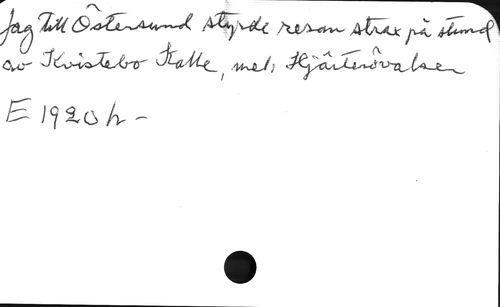 Jag till Östersund styrde resan strax på stund
av Kvistebo Kalle, mel: Hjärtersvalsen
E 1920 h -